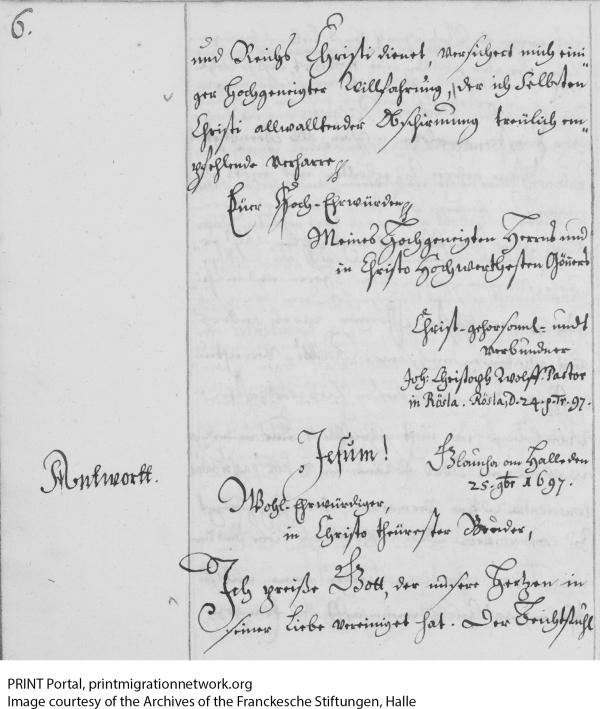 6.
und Reichs Christi dienet, versichert mich eini-
ger Hochgeneigter Willfahrung, der ich Selbsten
Christi allwalltender Abschirmung treülich em-
pfehlende verharre
Euer Hoch-Ehrwürden
Meines Hochgeneigten Herrns und
in Christo Hochwerthesten Gönners
Christ-gehorsamst- undt
verbundner
Joh: Christoph Wolff. Pastor
in Rösla. Rösla, D. 24. 97.
Antwortt.
Jesum!
Glaucha an Halle den
25. 9br 1697.
Wohl-Ehrwürdiger,
in Christo theürester Bruder,
Ich preiße Gott, der unsere Hertzen in
seiner Liebe vereiniget hat. Der Beichtstuhl
PRINT Portal, printmigrationnetwork.org
Image courtesy of the Archives of the Franckesche Stiftungen, Halle